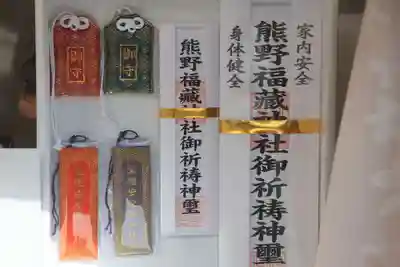 御守
御守
熊野福藏神社御祈祷神璽
家内安全
身体健全
熊野福藏神社御祈祷神璽